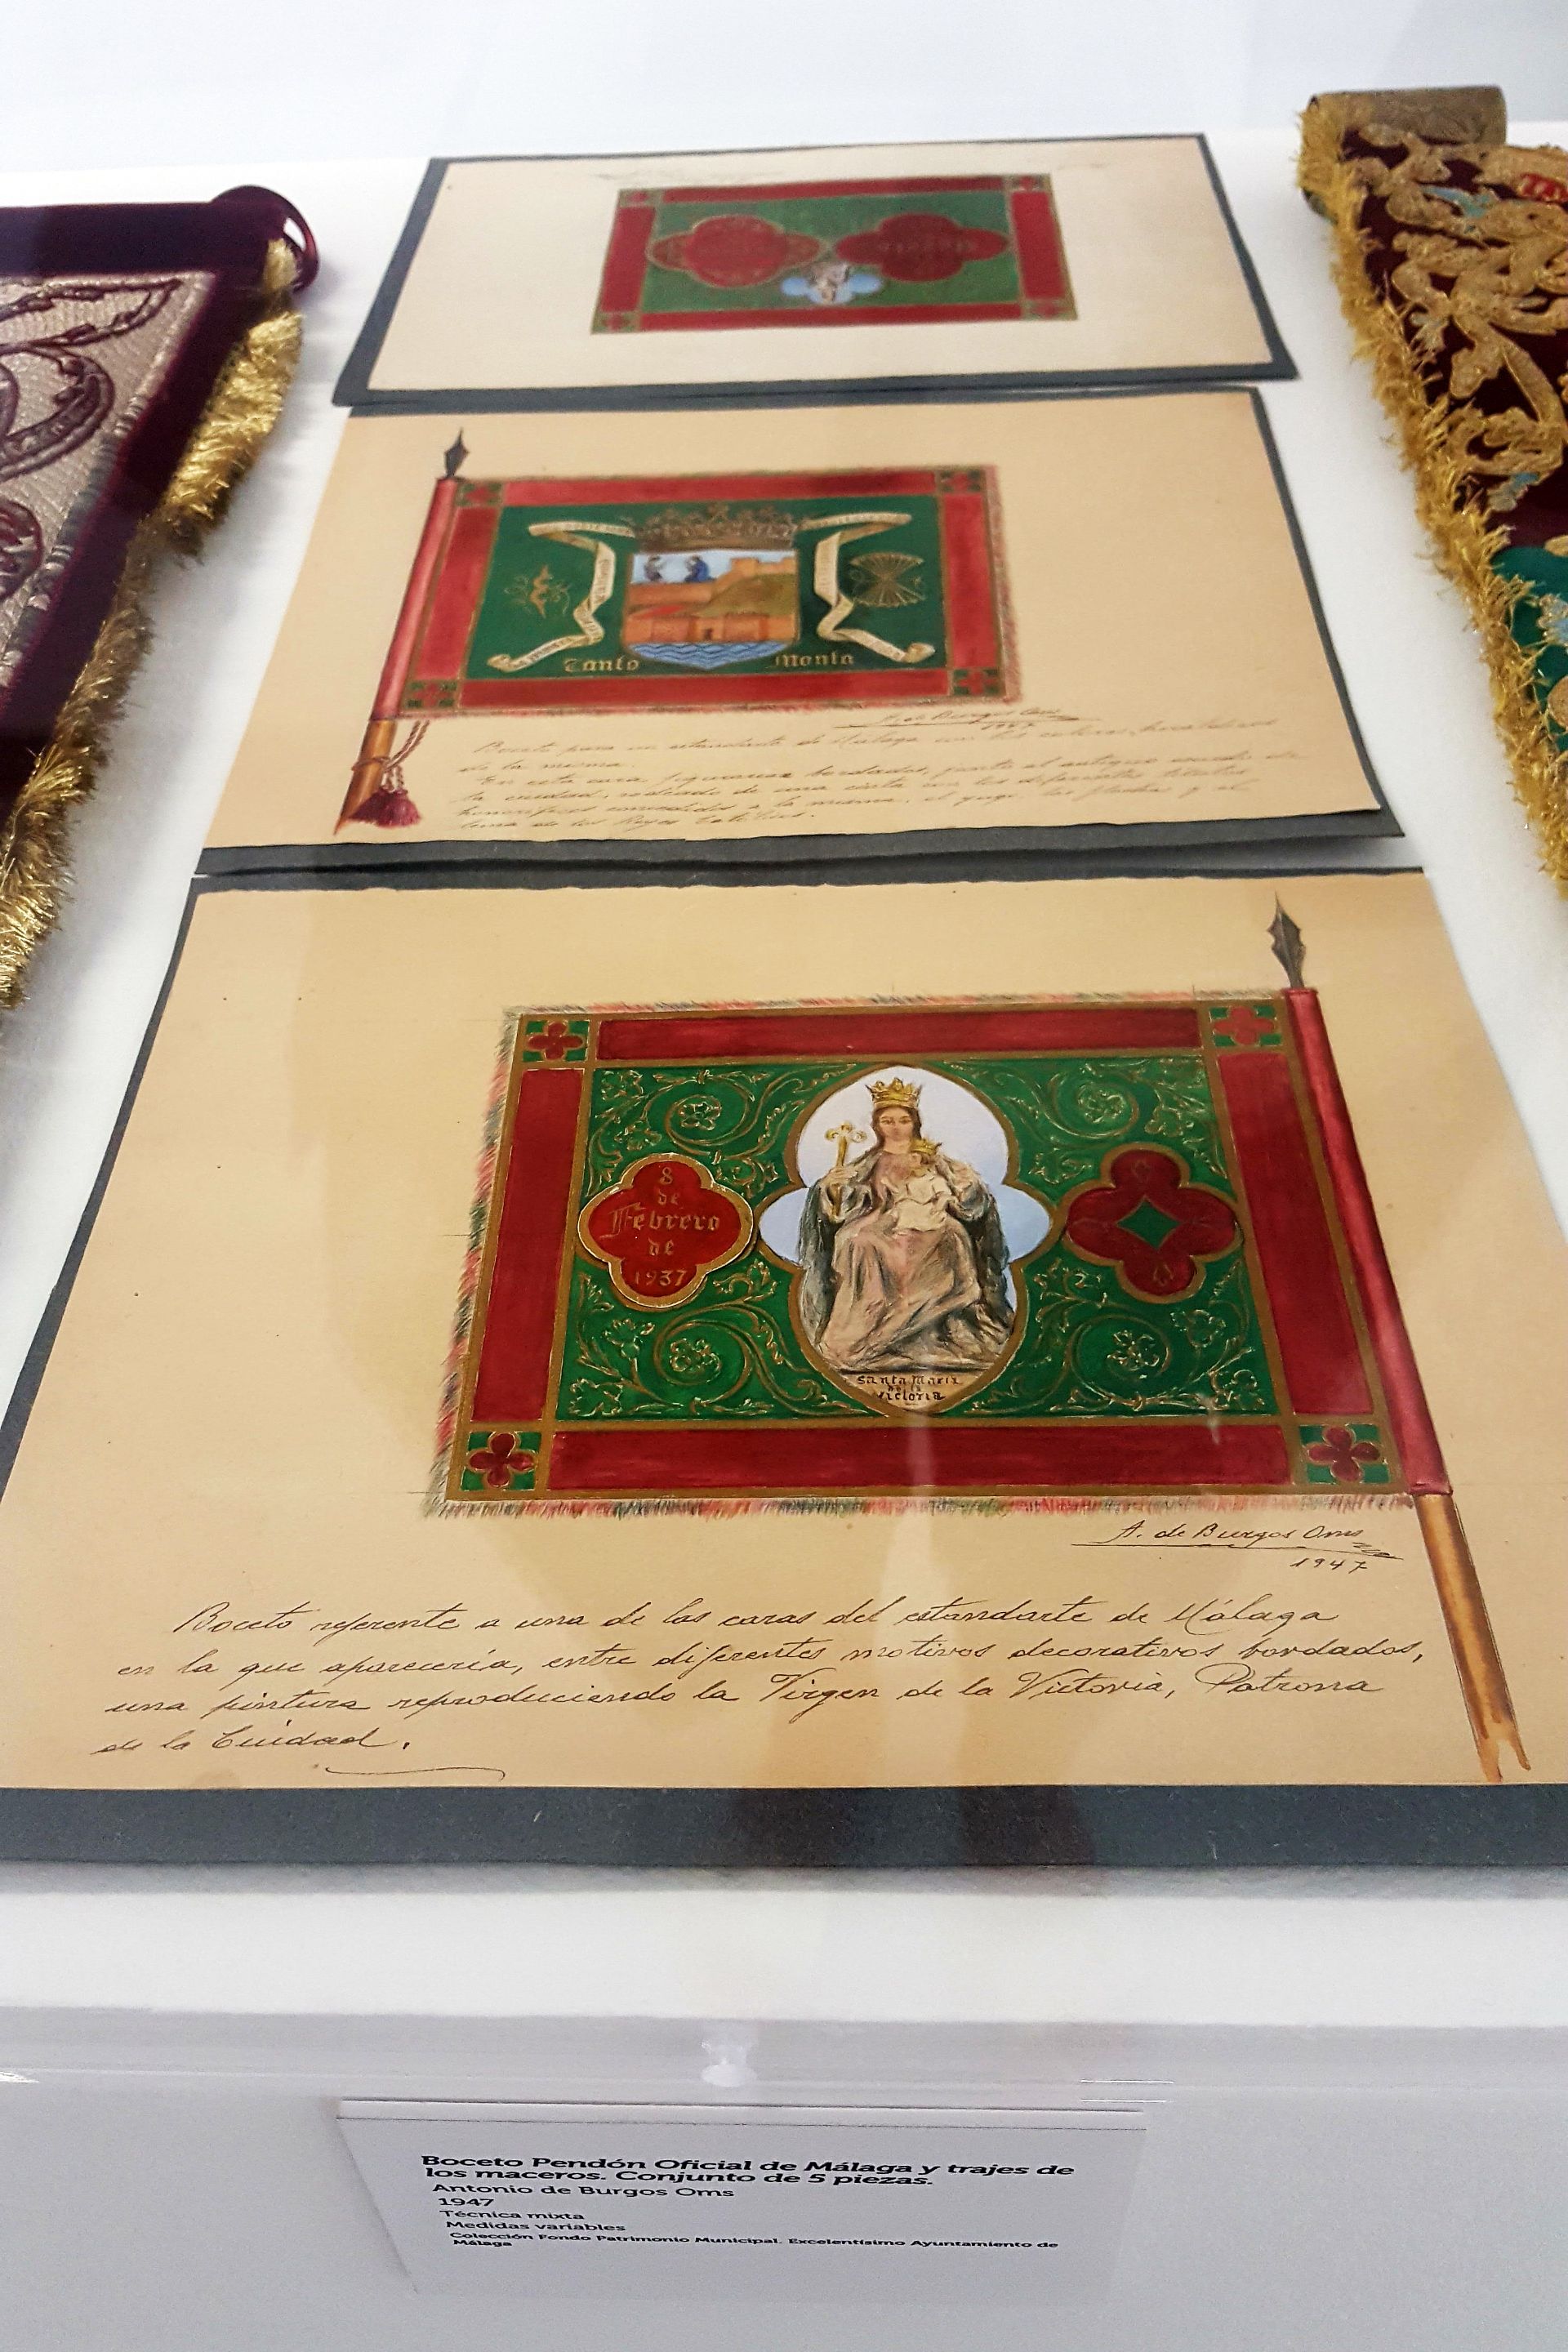 Tanto Monta
A. de Burgos Oms
1947
Boceto para un estandarte de Málaga con los colores
de la misma.
En esta cara figurarían bordados, junto al antiguo escudo de
la ciudad, rodeado de una cinta con los diferentes títulos
honoríficos concedidos a la misma, el yugo, las flechas y el
lema de los Reyes Católicos.
8
de
Febrero
de
1937
Santa Maria
de la
Victoria
A. de Burgos Oms
1947
Boceto referente a una de las caras del estandarte de Málaga
en la que aparecería, entre diferentes motivos decorativos bordados,
una pintura reproduciendo la Virgen de la Victoria, Patrona
de la Ciudad.
Boceto Pendón Oficial de Málaga y trajes de
los maceros. Conjunto de 5 piezas.
Antonio de Burgos Oms
1947
Técnica mixta
Medidas variables
Colección Fondo Patrimonio Municipal. Excelentísimo Ayuntamiento de
Málaga